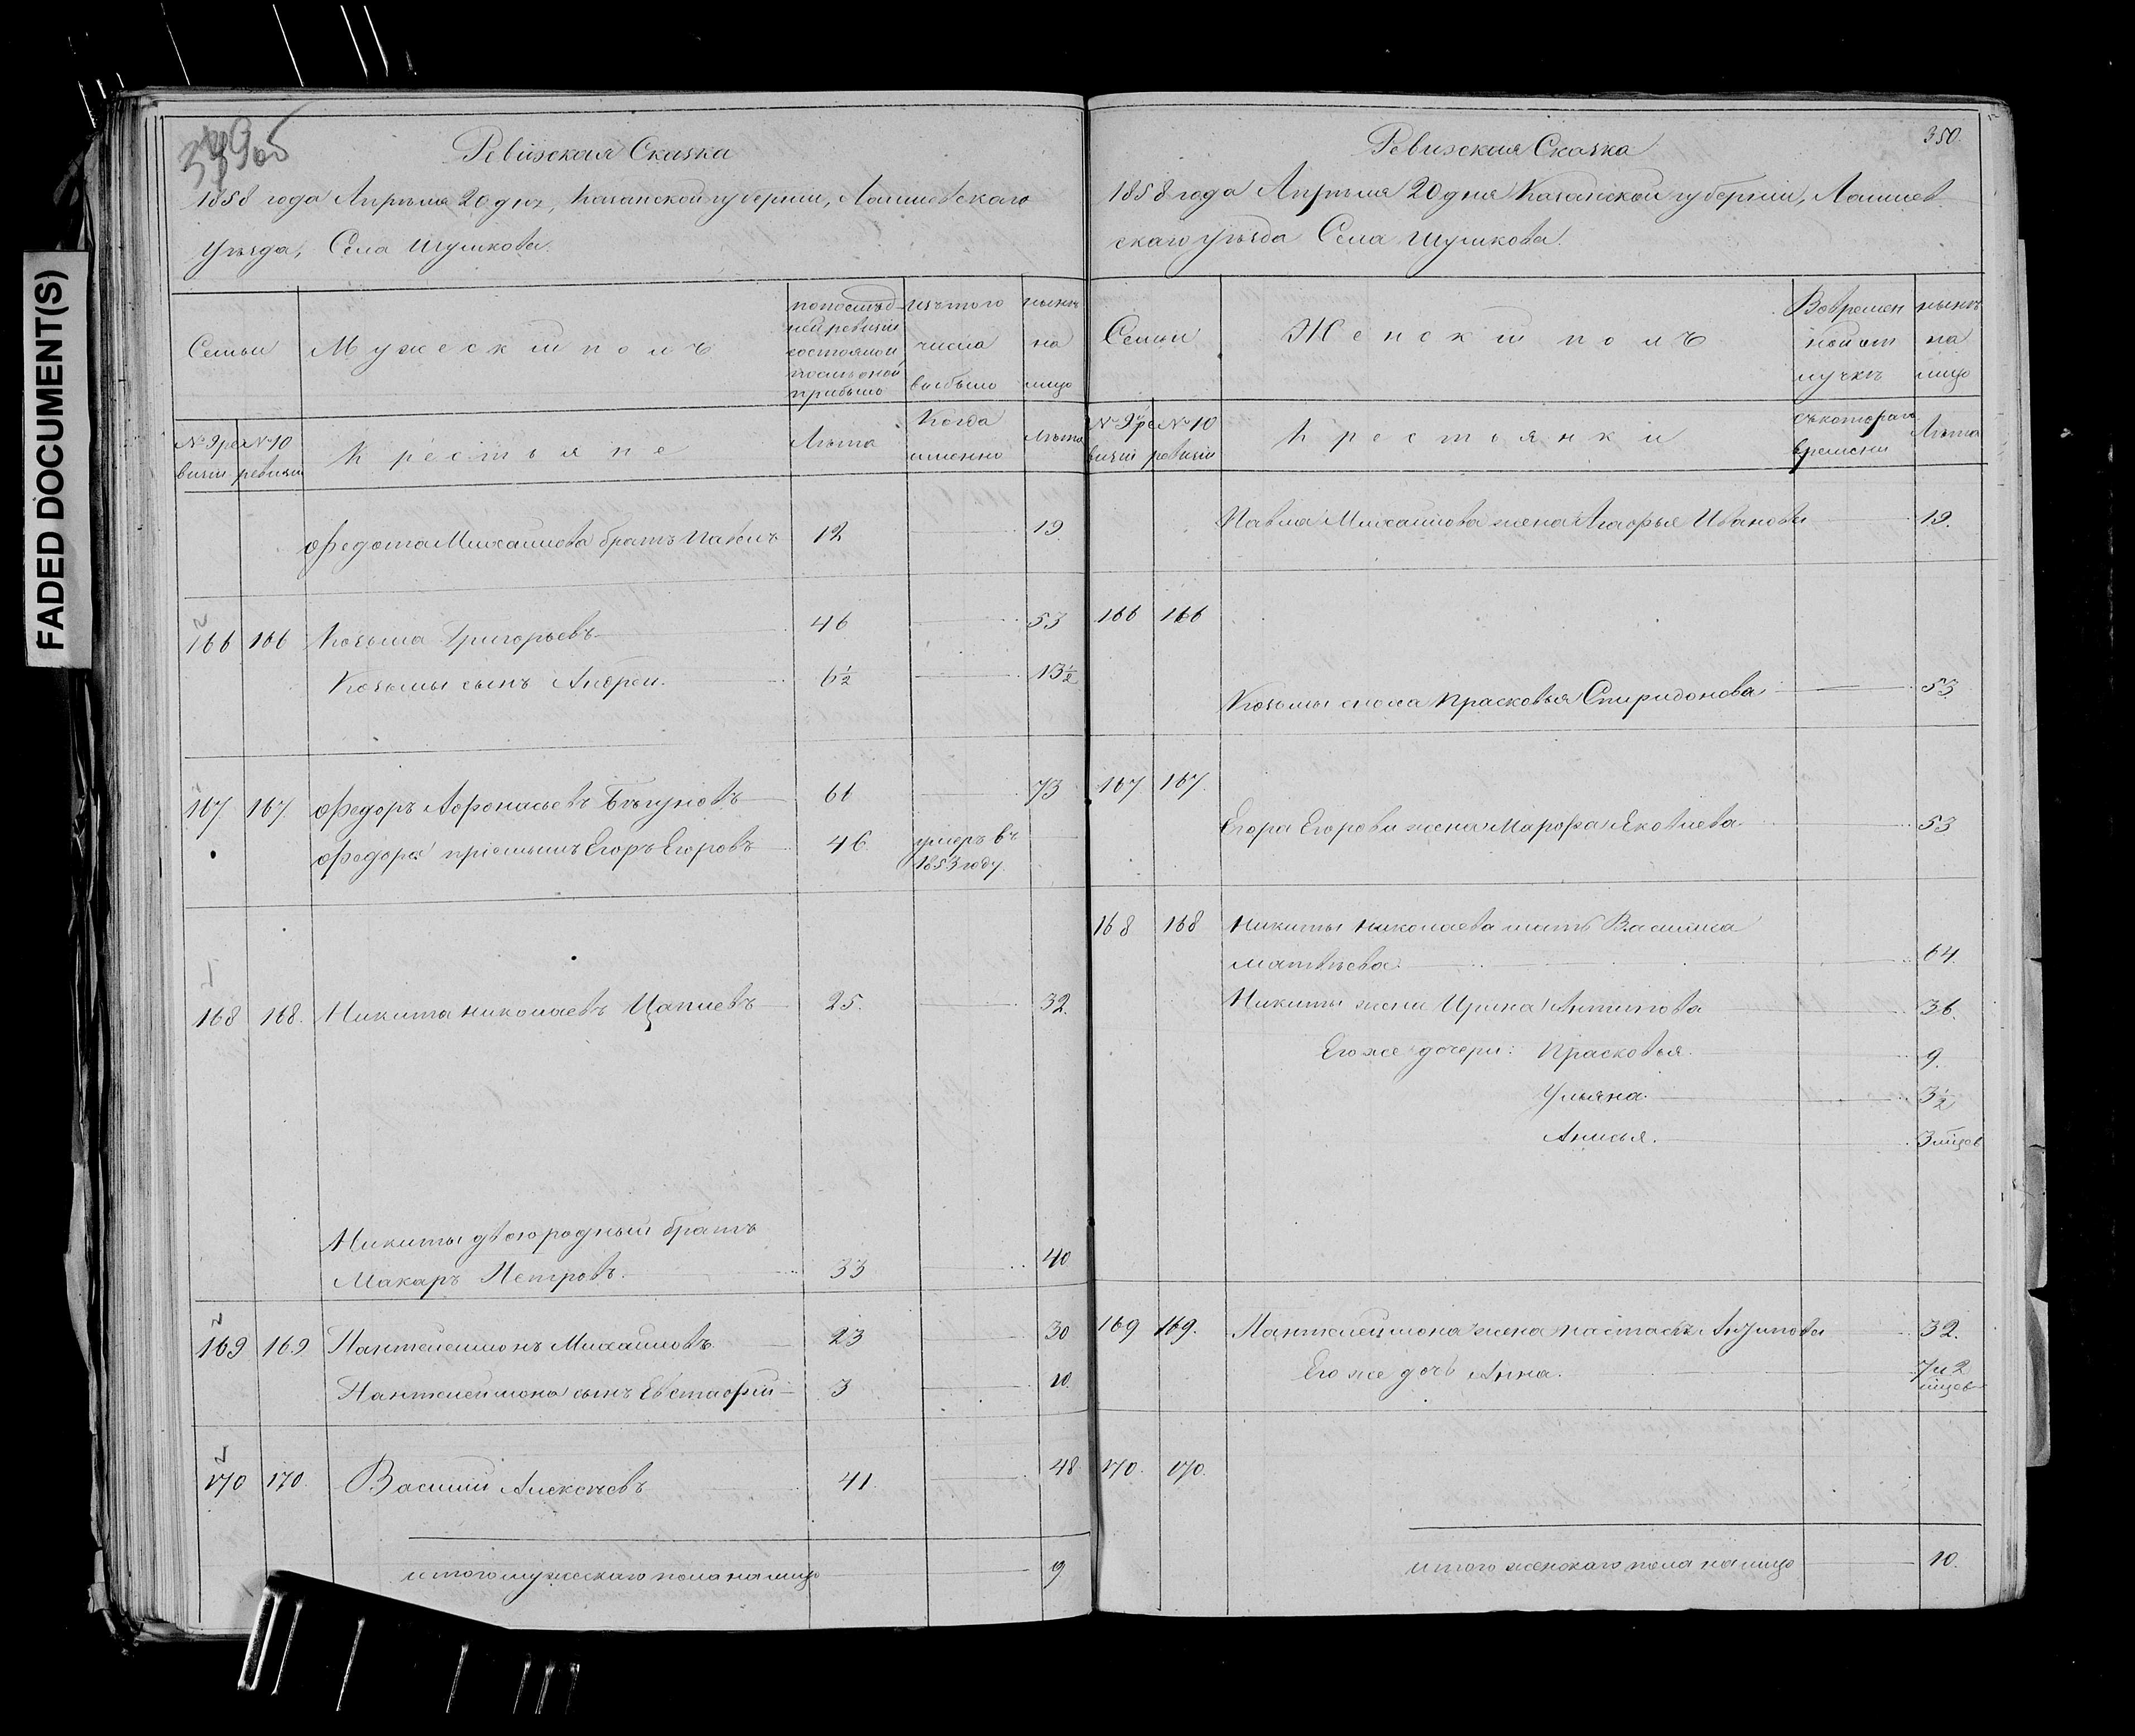 FADED DOCUMENT(S)
Ревизская Сказка
1858 года Апреля 20 дня, Казанской губернии, Лаишевскаго
уезда, Села Шушкова.
Семьи
Мужескій полъ
по послѣд-
ней ревизіи
состояло и
после оной
прибыло
изъ того
числа
выбыло
нынѣ
на
лицо
№ 9 ре
визіи
№ 10
ревизіи
Крестьяне
Лѣта
Когда
именно
Лѣта
Федота Михаилова братъ Павелъ 12 19
166 166 Козьма Григорьевъ 46 53
Козьмы сынъ Андрей. 6½ 13½
167 167. Федоръ Афонасьевъ Бѣгуновъ 66 73
Федора пріемышъ Егоръ Егоровъ 46 умеръ въ
1853 году
168 168. Никита Николаевъ Цаплевъ 25. 32.
Никиты двоюродный братъ
Макаръ Петровъ. 33 40
169 169 Пантелеимонъ Михаиловъ. 23 30
Пантелеимона сынъ Евстафій 3 10.
170 170. Василий Алексѣевъ 41. 48
итого мужескаго пола на лицо 9
350.
Ревизская Сказка
1858 года Апреля 20 дня Казанской губерніи, Лаишев
скаго уѣзда Села Шушкова.
Семьи
Женскій полъ
Во времен
ной от
лучкѣ
нынѣ
на
лицо
№ 9й ре
визіи
№ 10
ревизіи
Крестьянки
съ котораго
времени
Лѣта
Павла Михаилова жена Агафья Иванова 19.
166 166
Козьмы жена Прасковья Спиридонова 53
167 167.
Егора Егорова жена Марфа Яковлева 53
168 168 Никиты Николаева мать Василиса
Матвѣева. 64
Никиты жена Ирина Антипова 36.
Его же дочери: Прасковья. 9.
Ульяна. 3½
Анисья. 3 мѣсев
169 169. Пантелеимона жена Настасья Антипова 32.
Его же дочь Анна. 7 и 2
мѣсев
170. 170.
итого женскаго пола на лицо 10.